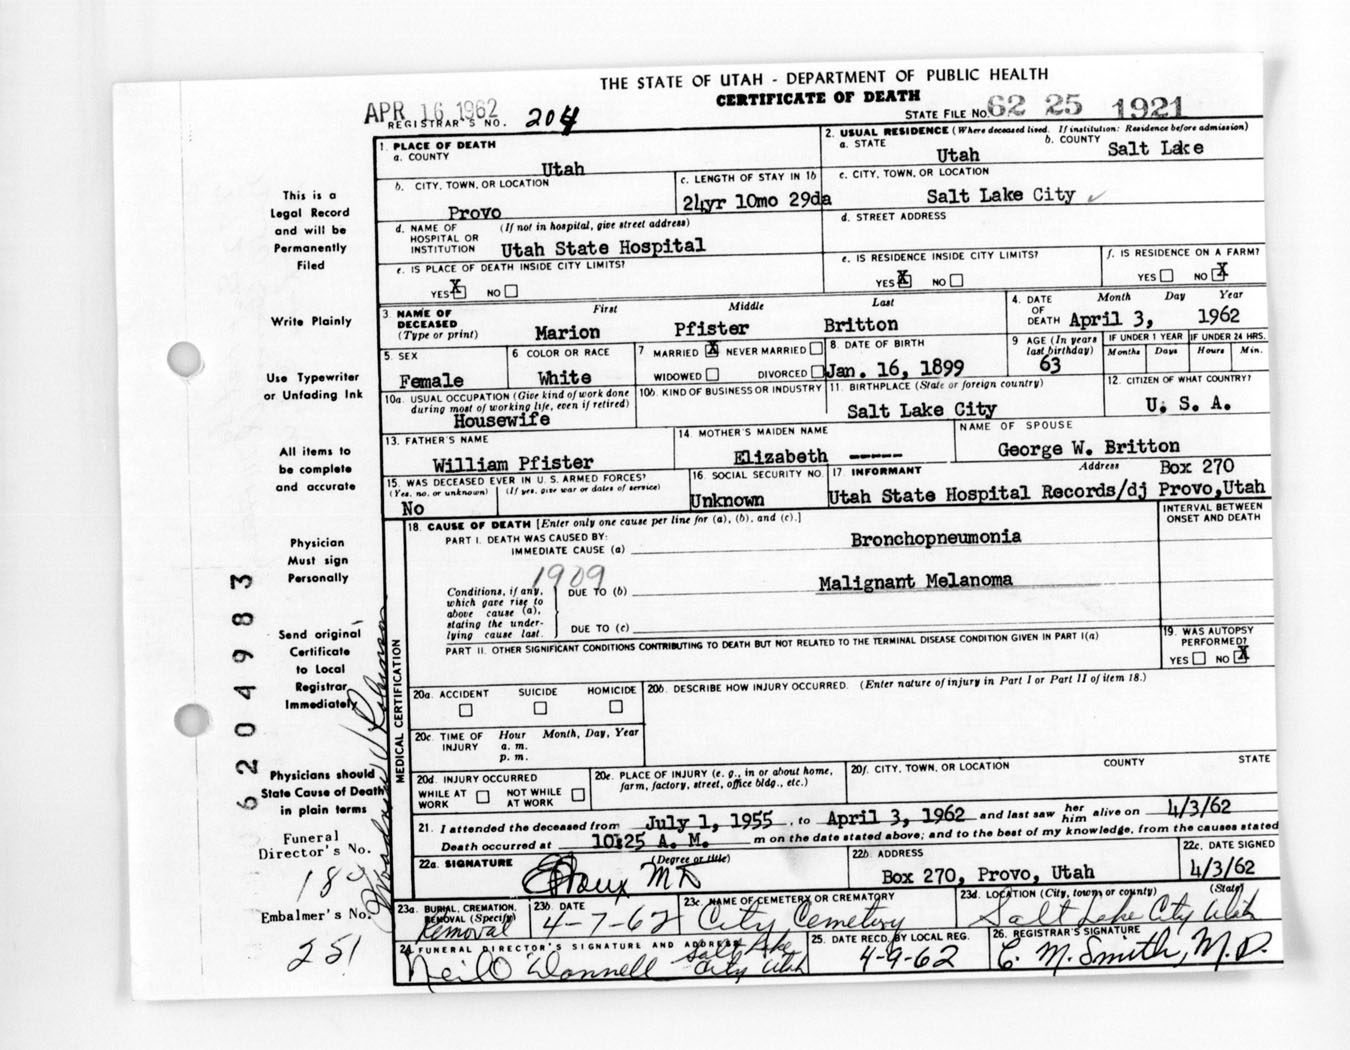 THE STATE OF UTAH - DEPARTMENT OF PUBLIC HEALTH
CERTIFICATE OF DEATH
APR 16 1962
REGISTRAR'S NO. 204
STATE FILE NO. 62 25 1921
1. PLACE OF DEATH
a. COUNTY
Utah
2. USUAL RESIDENCE (Where deceased lived. If institution: Residence before admission)
a. STATE
Utah
b. COUNTY Salt Lake
b. CITY, TOWN, OR LOCATION
Provo
c. LENGTH OF STAY IN 1b
24yr 10mo 29da
c. CITY, TOWN, OR LOCATION
Salt Lake City
d. NAME OF HOSPITAL OR INSTITUTION
(If not in hospital, give street address)
Utah State Hospital
d. STREET ADDRESS
e. IS PLACE OF DEATH INSIDE CITY LIMITS?
YES X NO
e. IS RESIDENCE INSIDE CITY LIMITS?
YES X NO
f. IS RESIDENCE ON A FARM?
YES NO X
3. NAME OF DECEASED (Type or print)
First Middle Last
Marion Pfister Britton
4. DATE OF DEATH
Month Day Year
April 3, 1962
5. SEX
Female
6 COLOR OR RACE
White
7 MARRIED X NEVER MARRIED
WIDOWED DIVORCED
8. DATE OF BIRTH
Jan. 16, 1899
9 AGE (In years last birthday)
63
IF UNDER 1 YEAR
Months Days
IF UNDER 24 HRS.
Hours Min.
10a. USUAL OCCUPATION (Give kind of work done during most of working life, even if retired)
Housewife
10b. KIND OF BUSINESS OR INDUSTRY
11. BIRTHPLACE (State or foreign country)
Salt Lake City
12. CITIZEN OF WHAT COUNTRY?
U. S. A.
13. FATHER'S NAME
William Pfister
14. MOTHER'S MAIDEN NAME
Elizabeth -----
NAME OF SPOUSE
George W. Britton
15. WAS DECEASED EVER IN U.S. ARMED FORCES?
(Yes, no, or unknown) (If yes, give war or dates of service)
No
16. SOCIAL SECURITY NO.
Unknown
17. INFORMANT Address Box 270
Utah State Hospital Records/dj Provo, Utah
18. CAUSE OF DEATH [Enter only one cause per line for (a), (b), and (c).]
INTERVAL BETWEEN ONSET AND DEATH
PART I. DEATH WAS CAUSED BY:
IMMEDIATE CAUSE (a) Bronchopneumonia
1909
Conditions, if any, which gave rise to above cause (a), stating the underlying cause last.
DUE TO (b) Malignant Melanoma
DUE TO (c)
PART II. OTHER SIGNIFICANT CONDITIONS CONTRIBUTING TO DEATH BUT NOT RELATED TO THE TERMINAL DISEASE CONDITION GIVEN IN PART I(a)
19. WAS AUTOPSY PERFORMED?
YES NO X
MEDICAL CERTIFICATION
20a. ACCIDENT SUICIDE HOMICIDE
20b. DESCRIBE HOW INJURY OCCURRED. (Enter nature of injury in Part I or Part II of item 18.)
20c. TIME OF INJURY
Hour Month, Day, Year
a. m.
p. m.
20d. INJURY OCCURRED
WHILE AT WORK NOT WHILE AT WORK
20e. PLACE OF INJURY (e. g., in or about home, farm, factory, street, office bldg., etc.)
20f. CITY, TOWN, OR LOCATION COUNTY STATE
21. I attended the deceased from July 1, 1955, to April 3, 1962 and last saw her him alive on 4/3/62
Death occurred at 10:25 A. M. m on the date stated above; and to the best of my knowledge, from the causes stated
22a. SIGNATURE (Degree or title)
MD
22b. ADDRESS
Box 270, Provo, Utah
22c. DATE SIGNED
4/3/62
23a. BURIAL, CREMATION, REMOVAL (Specify)
Removal
23b. DATE
4-7-62
23c. NAME OF CEMETERY OR CREMATORY
City Cemetery
23d. LOCATION (City, town, or county) (State)
Salt Lake City Utah
24. FUNERAL DIRECTOR'S SIGNATURE AND ADDRESS
Neil O'Donnell Salt Lake City Utah
25. DATE RECD. BY LOCAL REG.
4-9-62
26. REGISTRAR'S SIGNATURE
C. M. Smith, M.D.
This is a
Legal Record
and will be
Permanently
Filed
Write Plainly
Use Typewriter
or Unfading Ink
All items to
be complete
and accurate
Physician
Must sign
Personally
Send original
Certificate
to Local
Registrar
Immediately
Physicians should
State Cause of Death
in plain terms
Funeral
Director's No.
Embalmer's No.
251
6204983